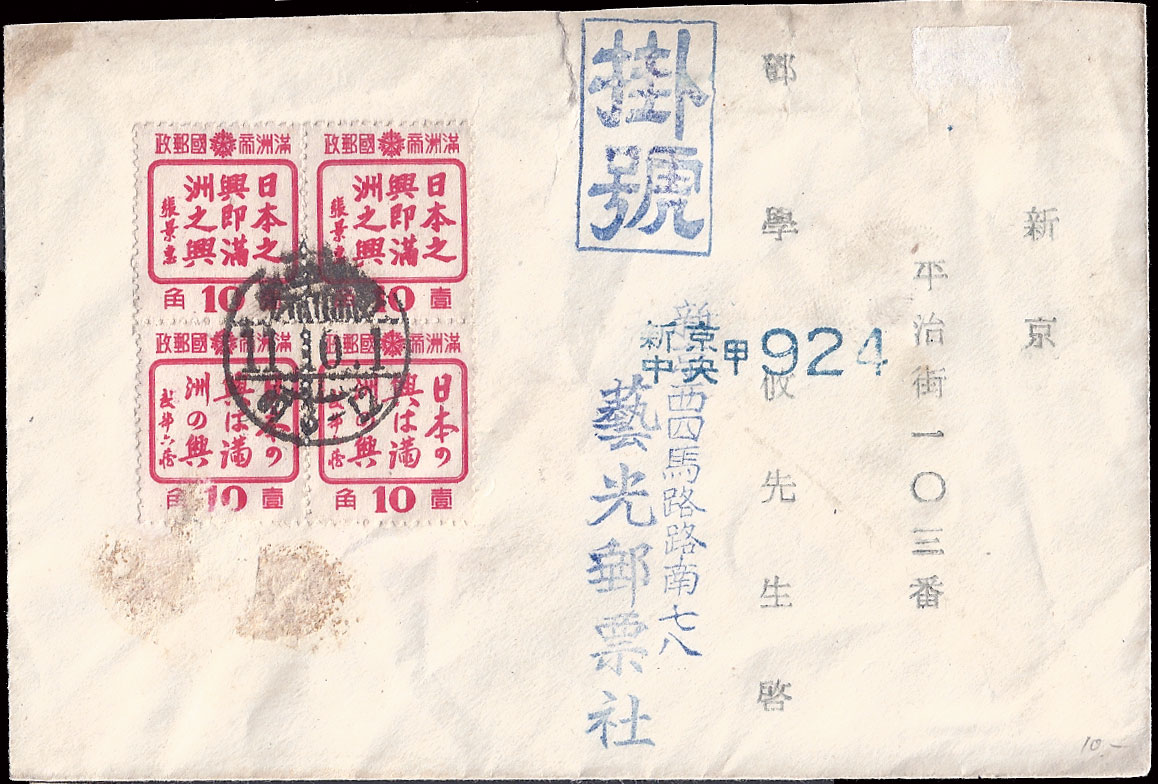 新京
平治街一〇三番
鄧學收先生啓
掛號
新京中央甲924
西四馬路路南七八
藝光郵票社
滿洲帝國郵政
日本之
興即滿
洲之興
張景惠
壹10角
滿洲帝國郵政
日本之
興即滿
洲之興
張景惠
10角
滿洲帝國郵政
日本の
興は滿
洲の興
武部六蔵
壹10角
滿洲帝國郵政
日本の
興は滿
洲の興
武部六蔵
壹10角
11.10.1
10.-